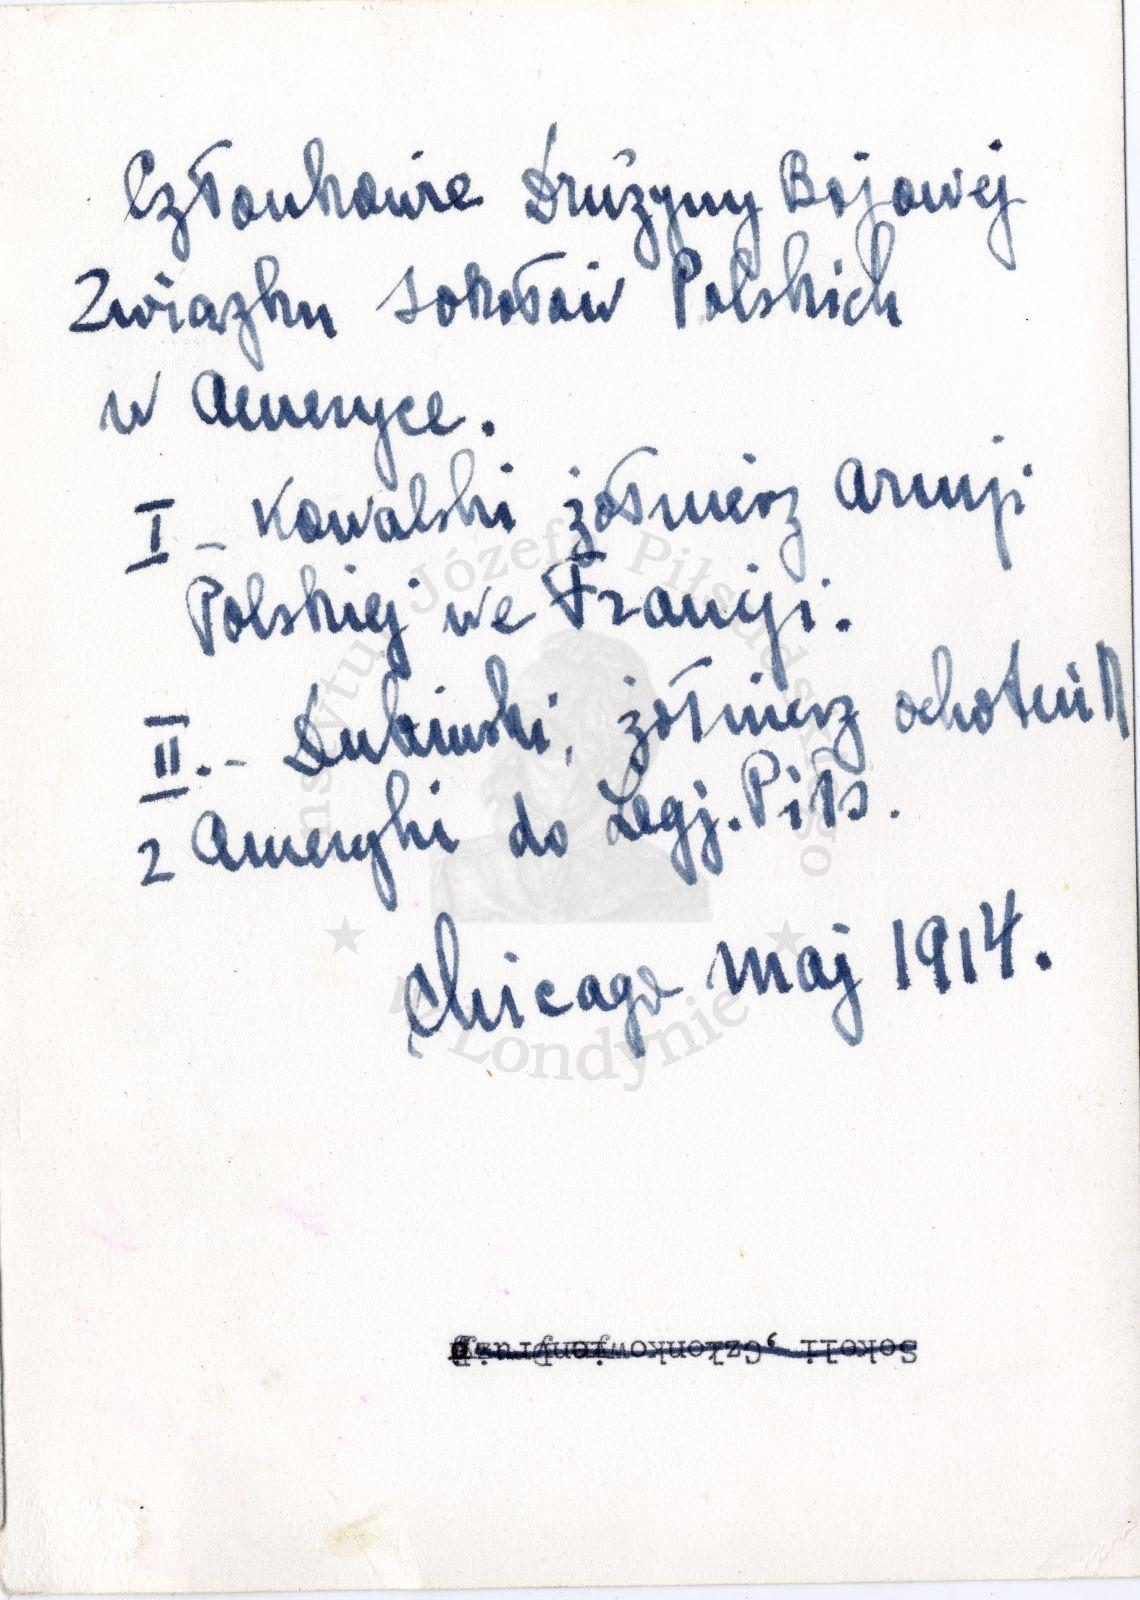 Członkowie Drużyny Bojowej
Związku Sokołów Polskich
w Ameryce.
I - Kowalski żołnierz Armji
Polskiej we Francji.
II. - Dubiński, żołnierz ochotnik
z Ameryki do Legj. Piłs.
Chicago maj 1914.
Instytut Józefa Piłsudskiego
w Londynie
Sokoli, Członkowie